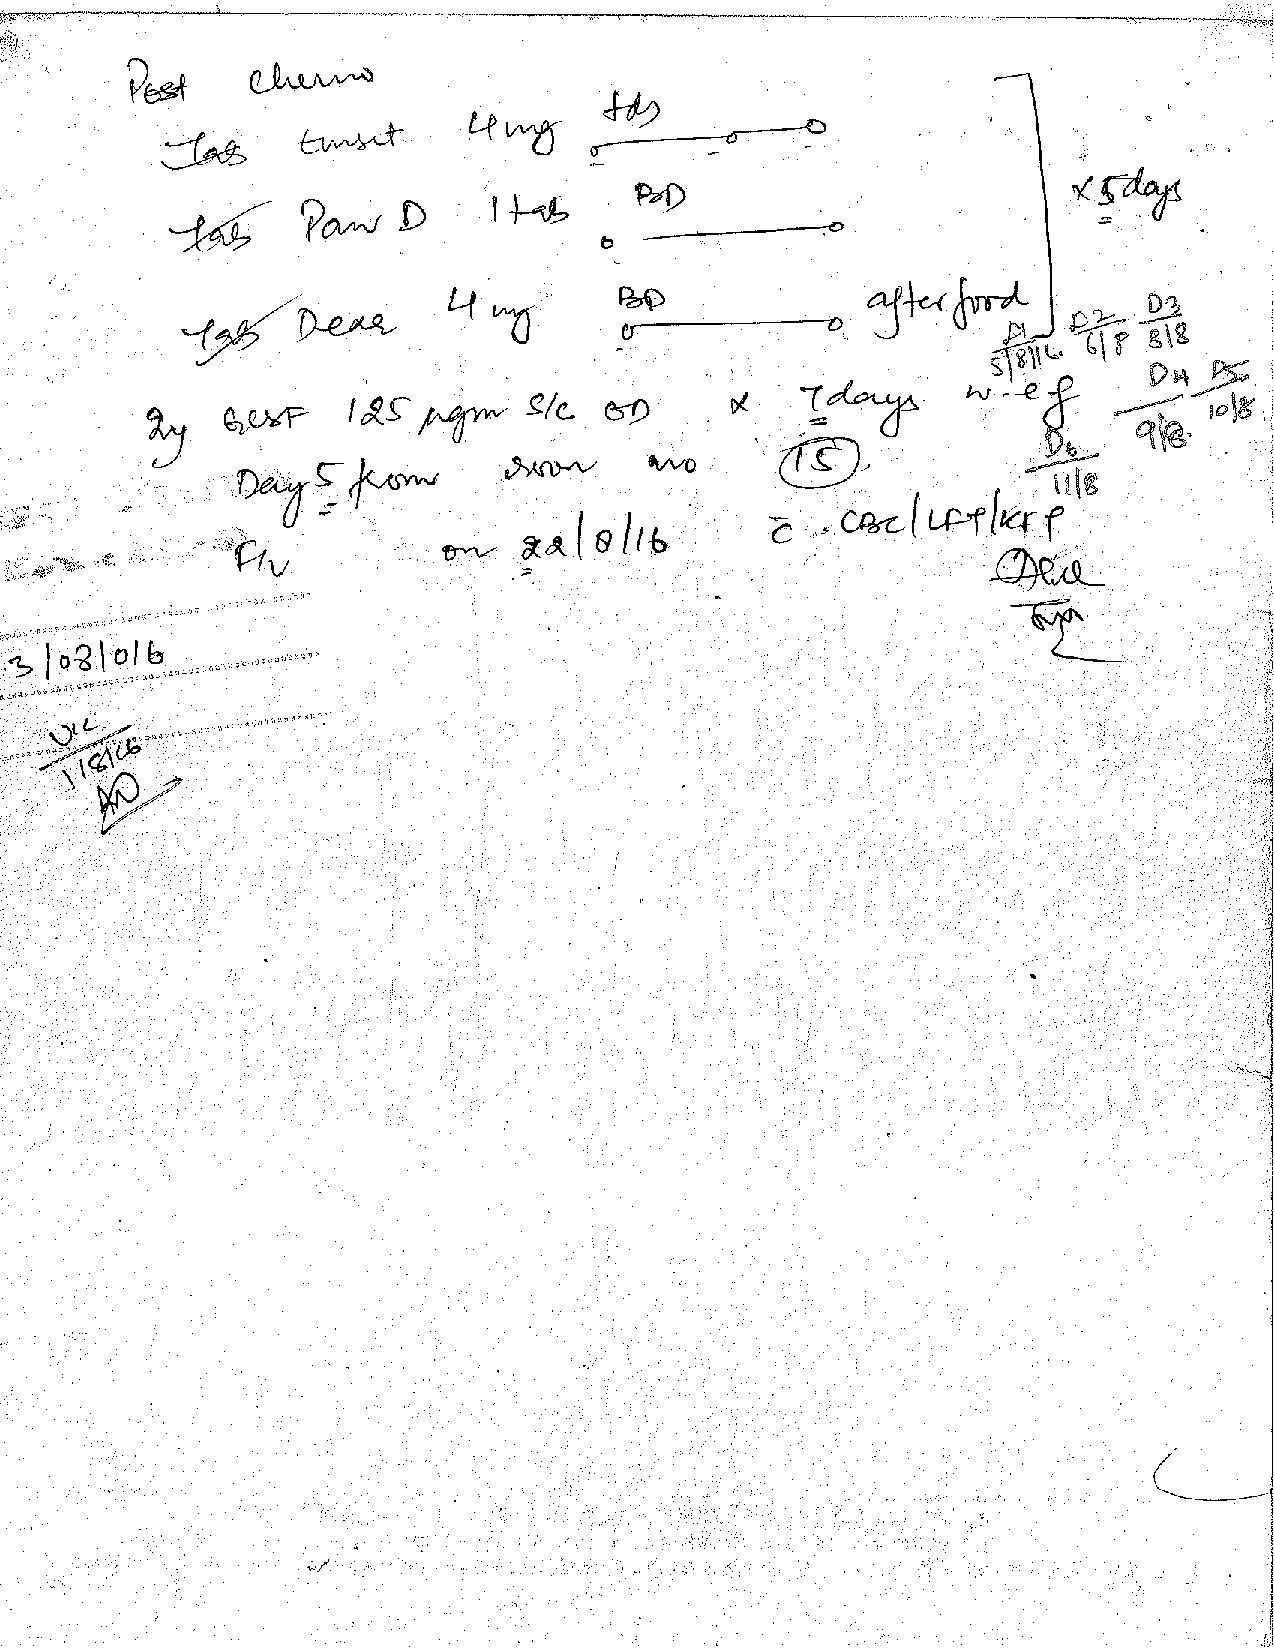 Post Chemo
Tab Emset 4mg tds
Tab Pan D 1 tab BD
x 5 days
Tab Dexa 4mg BD after food
D1 5/8/16 D2 6/8 D3 8/8
D4 9/8 D5 10/8
D6 11/8
GCSF 125 µgm S/C OD x 7 days w.e.f
Day 5 from room no 15
F/u on 22/8/16 c̄ CBC/LFT/KFT
3/08/016
1/8/16